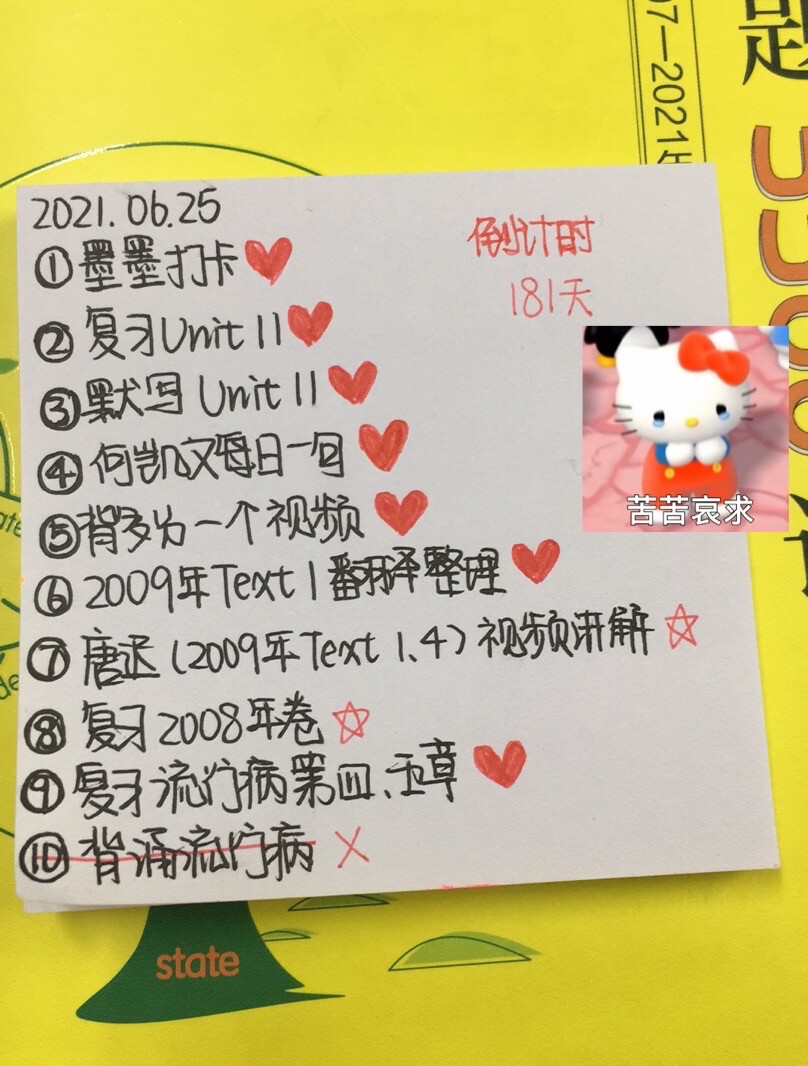 07—2021年
题
5500
2021.06.25
倒计时
181天
①墨墨打卡
②复习Unit 11
③默写 Unit 11
④何凯文每日一句
⑤背多分一个视频
⑥2009年Text 1翻译整理
⑦唐迟(2009年Text 1、4)视频讲解
⑧复习2008年卷
⑨复习流行病第四、五章
⑩背诵流行病
苦苦哀求
state